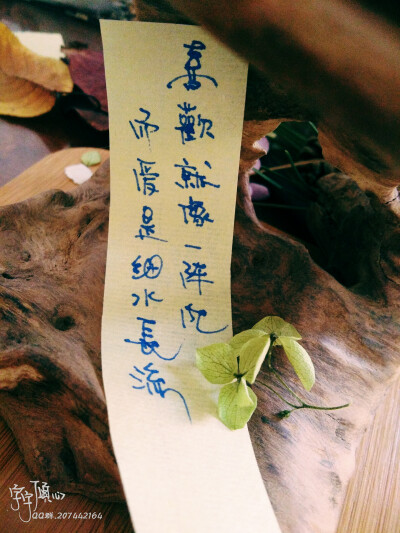 喜歡就像一陣风
而愛是細水長流
QQ群.207442164